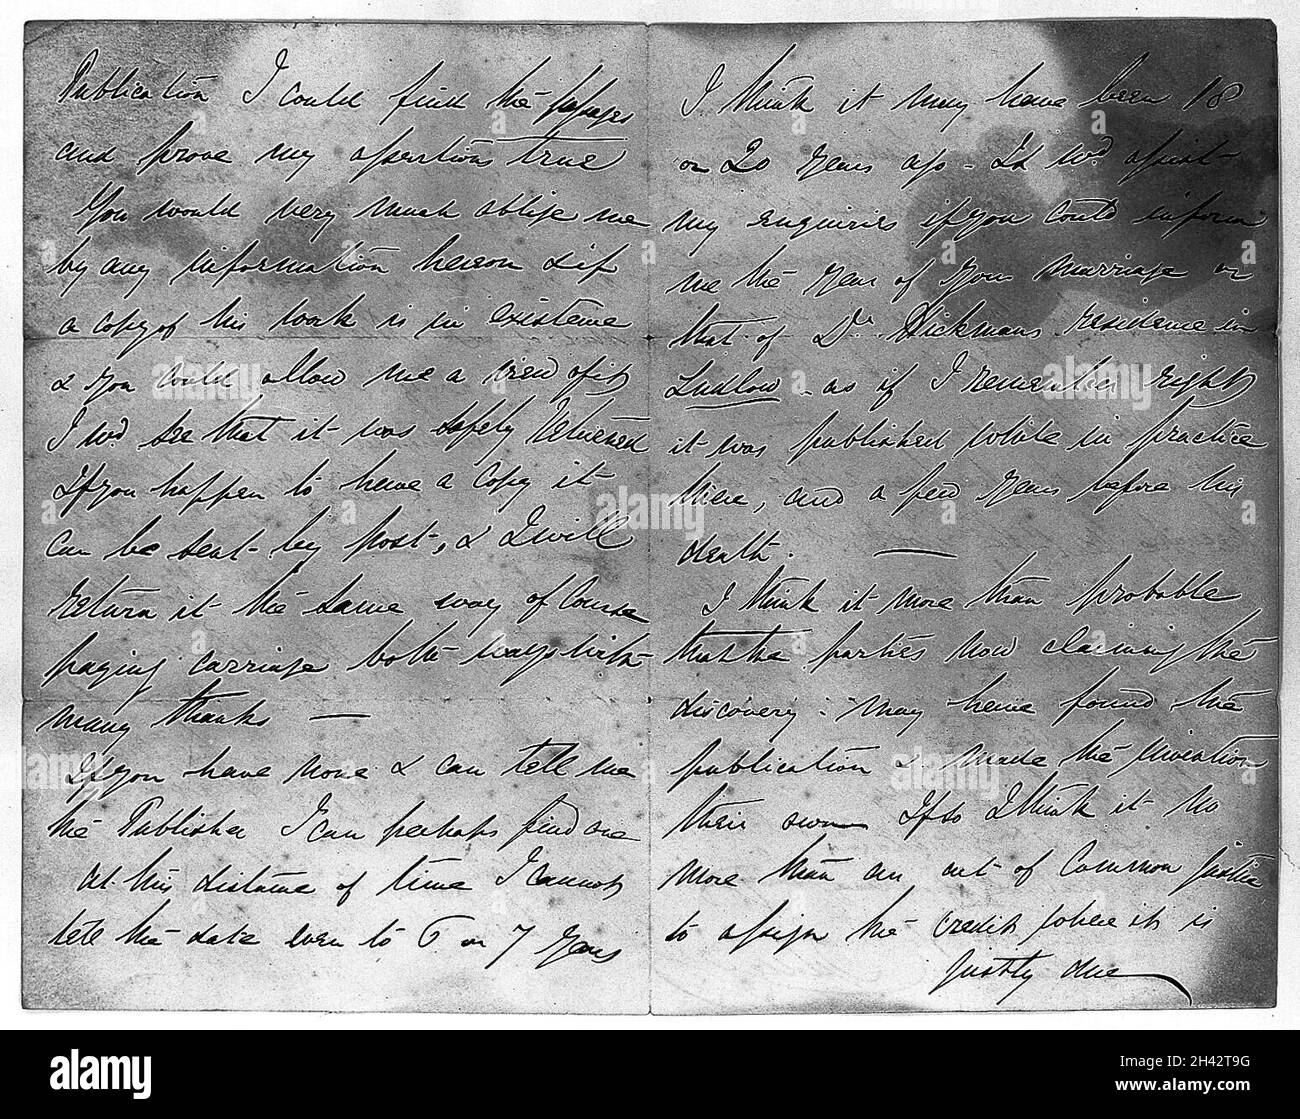 Publication I could find the passages
and prove my assertion true
You would very much oblige me
by any information hereon & if
a copy of his work is in existence
& you could allow me a view of it
I wd see that it was safely returned
If you happen to have a copy it
can be sent by post, & I will
return it the same way of course
paying carriage both ways with
many thanks —
If you have none & can tell me
the Publisher I can perhaps find one
At this distance of time I cannot
tell the date even to 6 or 7 years
I think it may have been 18
or 20 years ago - It wd assist
my enquiries if you could inform
me the year of your marriage or
that of Dr. Hickmans residence in
Ludlow - as if I remember right
it was published while in practice
there, and a few years before his
death. —
I think it more than probable
that the parties now claiming the
discovery - may have found the
publication & made the invention
their own If so I think it no
more than an act of Common justice
to assign the credit where it is
justly due
alamy
Image ID: 2H42T9G
www.alamy.com